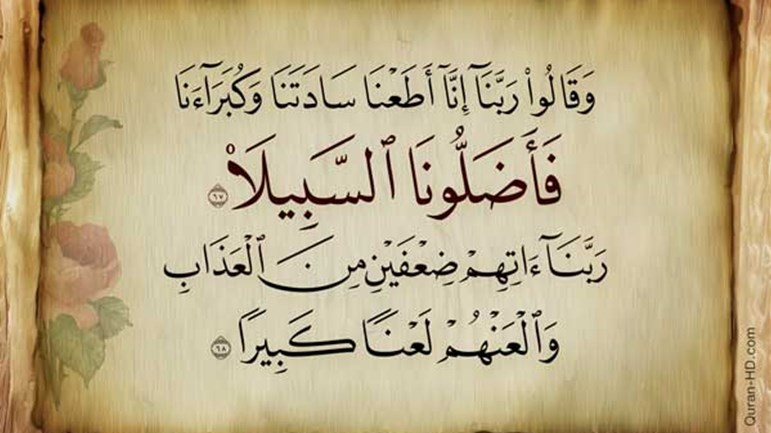 وَقَالُوا۟ رَبَّنَآ إِنَّآ أَطَعْنَا سَادَتَنَا وَكُبَرَآءَنَا
فَأَضَلُّونَا ٱلسَّبِيلَا۠ ٦٧
رَبَّنَآ ءَاتِهِمْ ضِعْفَيْنِ مِنَ ٱلْعَذَابِ
وَٱلْعَنْهُمْ لَعْنًا كَبِيرًا ٦٨
Quran-HD.com